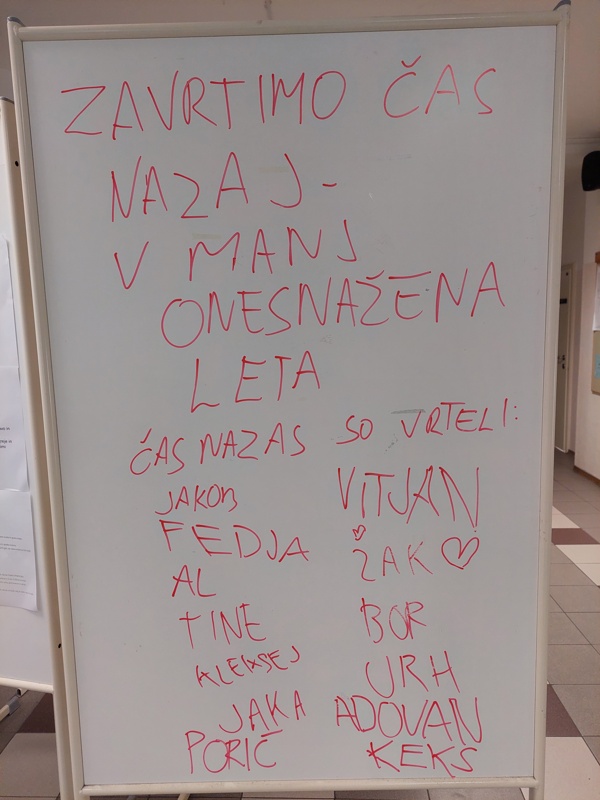 ZAVRTIMO ČAS
NAZAJ -
V MANJ
ONESNAŽENA
LETA
ČAS NAZAS SO VRTELI:
JAKOB VITJAN
FEDJA ŽAK
AL
TINE BOR
ALEKSEJ URH
JAKA ADOVAN
PORIČ KEKS